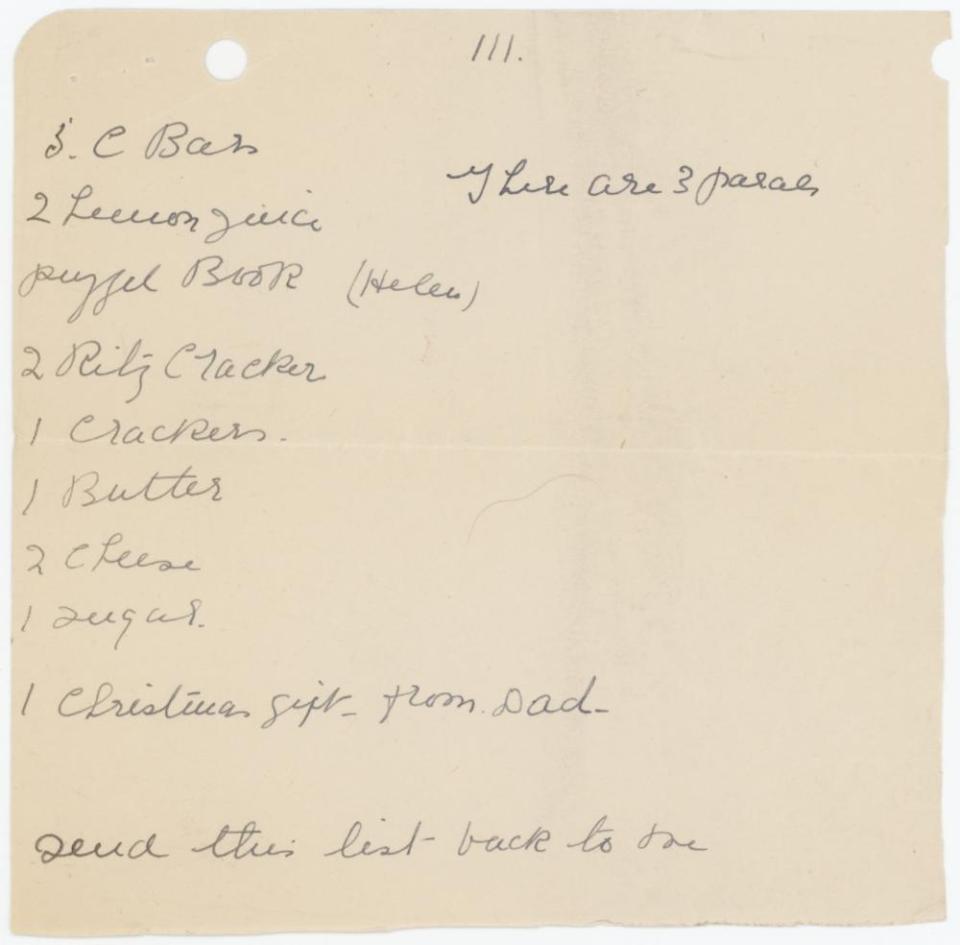 111.
5. C Bars
There are 3 parcels
2 Lemon juice
puzzel Book (Helen)
2 Ritz Cracker
1 Crackers.
1 Butter
2 Cheese
1 sugar.
1 Christmas gift - from Dad -
send this list back to me